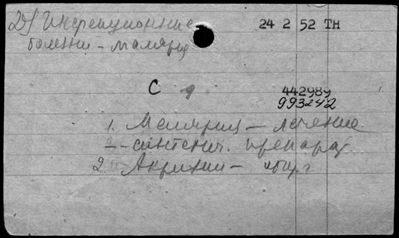 2д/ Инфекционные
24 2 52 ТН
болезни - малярия
С 9
442989
993242
1. Малярия - лечение
2 - синтетич. препарат.
2. Акрихин -